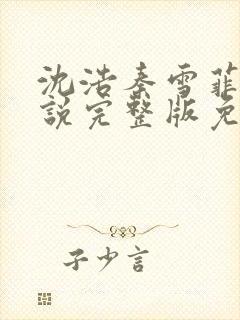 沈浩秦雪菲
說完整版免
子少言